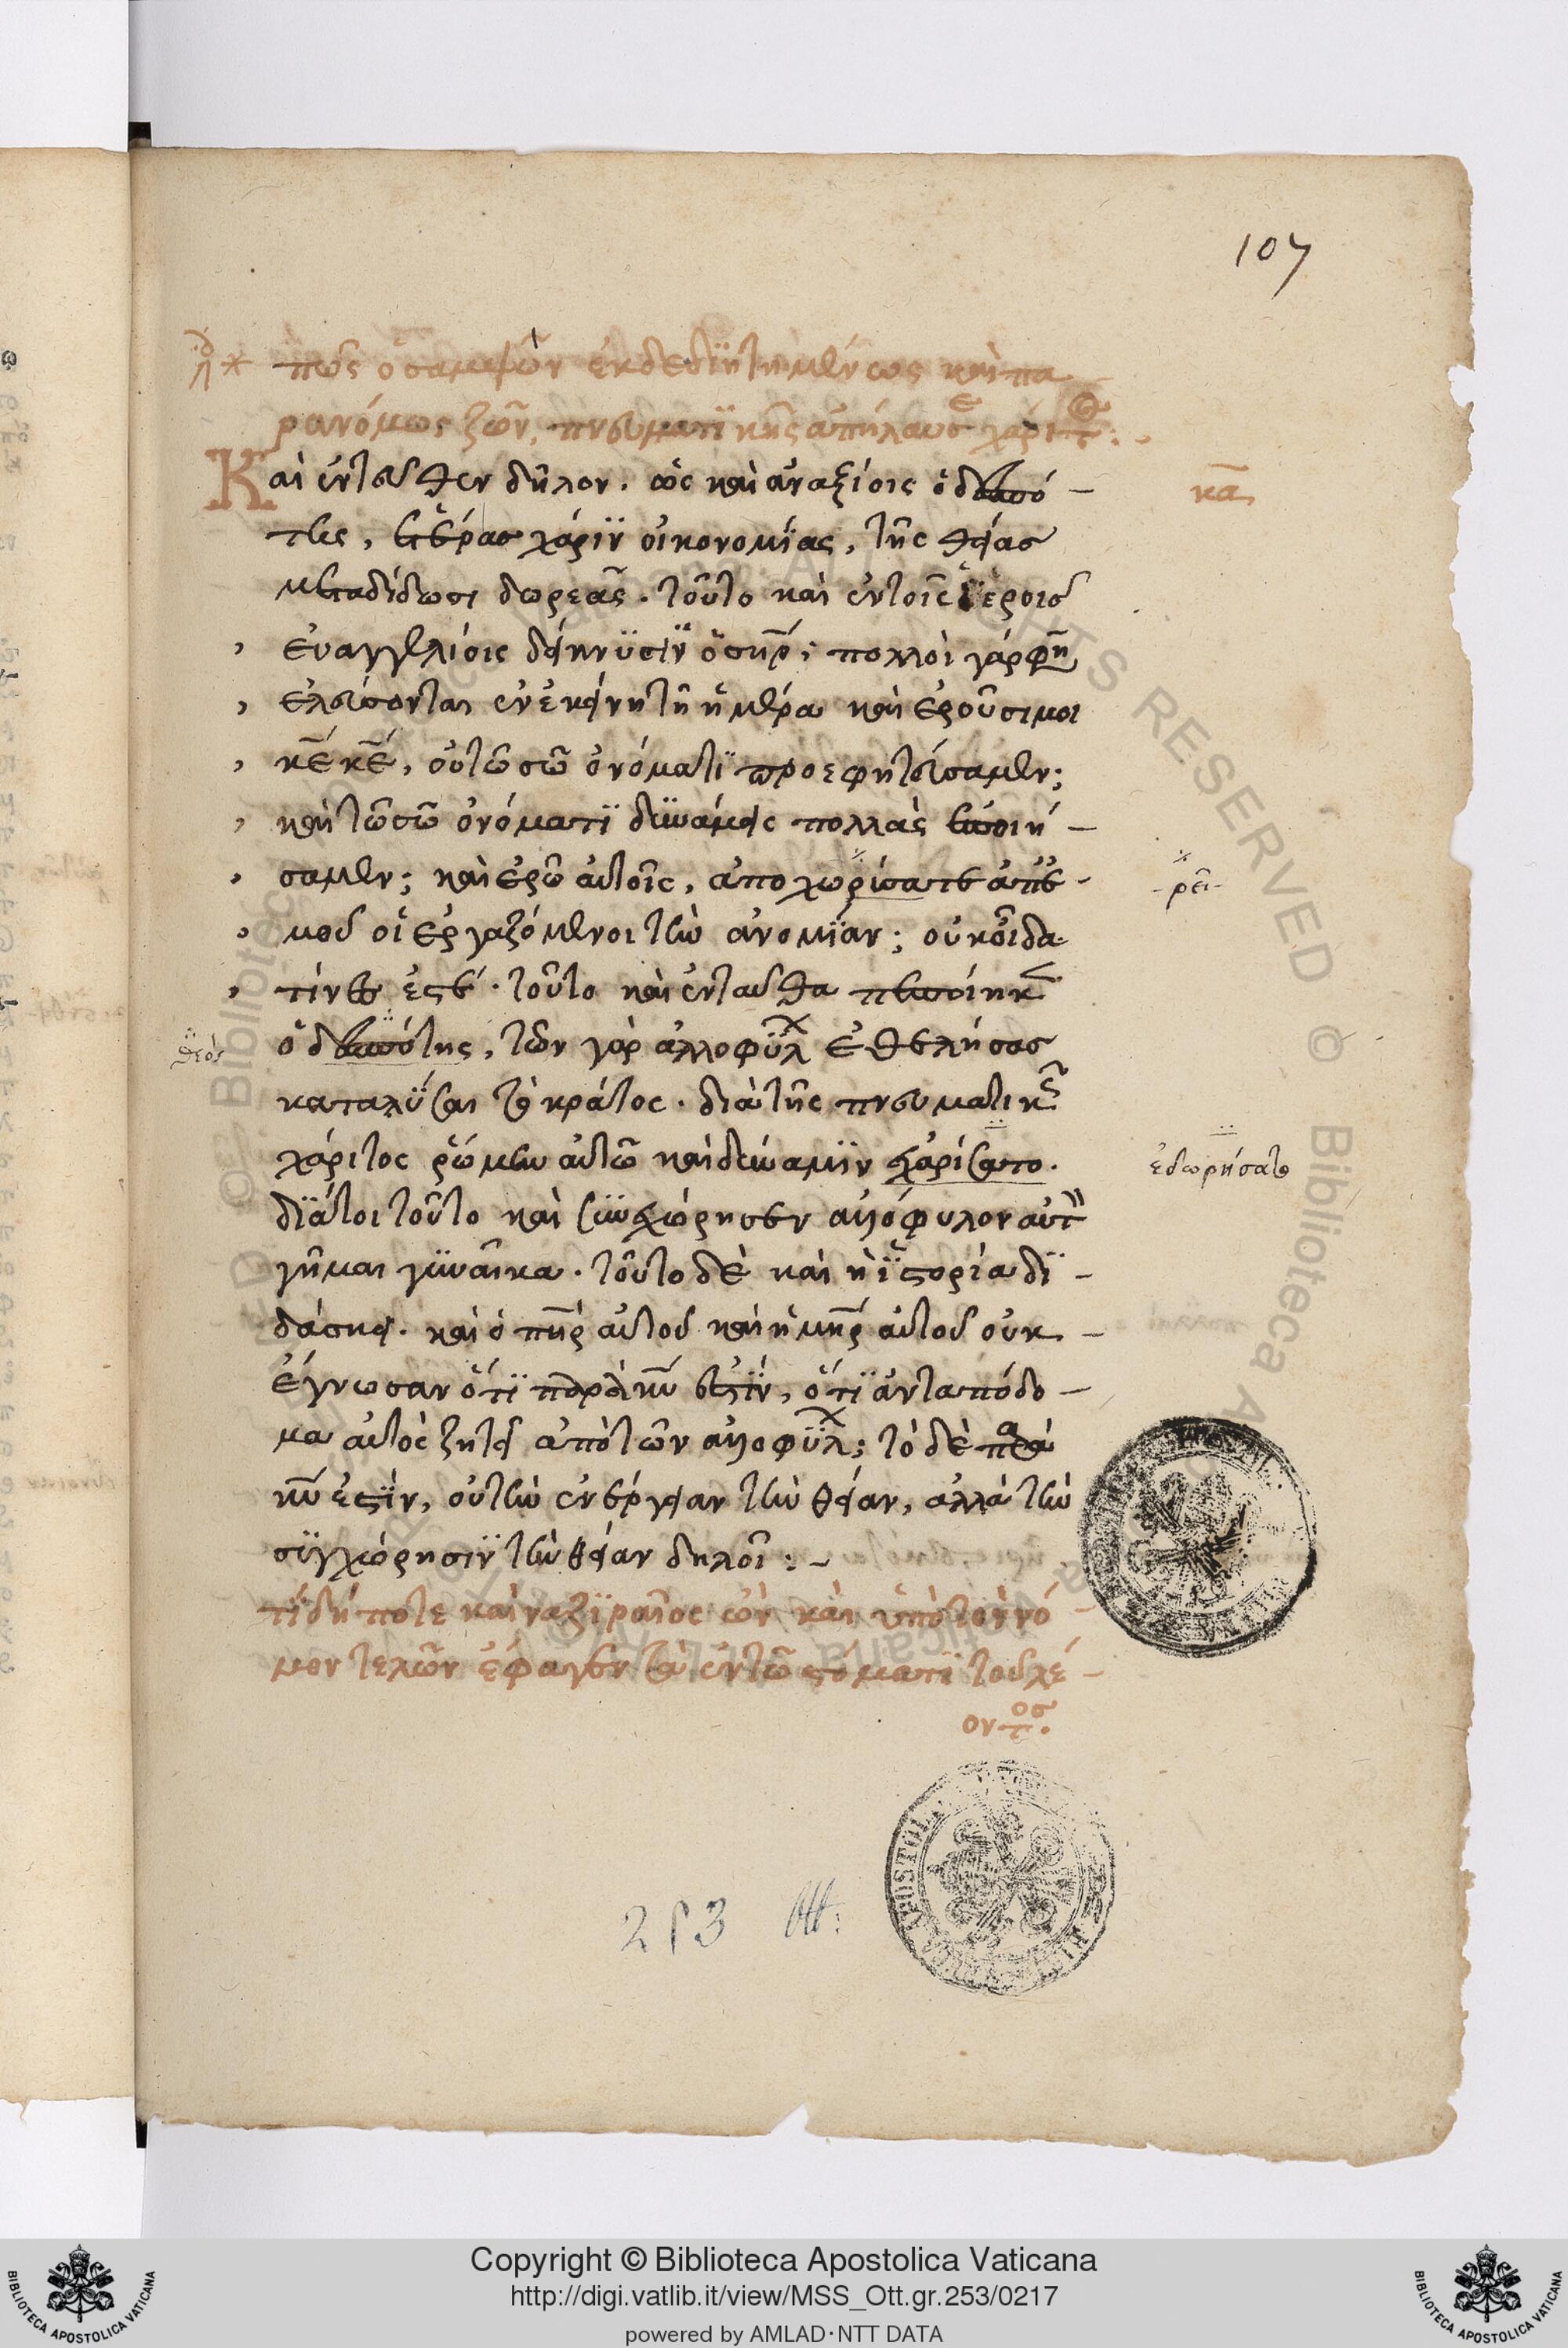 107
πῶς ὁ σαμψὼν ἐκδεδϊητημένως καὶ πα
ρανόμως ζῶν, πνευματϊκῆς ἀπήλαυσε χάριτος:
Καὶ ἐντεῦθεν δῆλον. ὡς καὶ ἀναξίοις ὁ δεσπό –
κα
της, ἑτέρας χάριν οἰκονομίας, τῆς θείας
μεταδίδωσι δωρεᾶς. τοῦτο καὶ ἐν τοῖς ἱεροῖς
εὐαγγελίοις δείκνυσιν ὁ σηρ; πολλοὶ γάρ φη
ἐλεύσονται ἐν ἐκείνη τῆ ἡμέρα καὶ ἐροῦσι μοι
κε κε, οὐ τῶ σῶ ὀνόματι προεφητεύσαμεν;
καὶ τῶ σῶ ὀνόματϊ δυνάμεις πολλὰς ἐποιή –
σαμεν; καὶ ἐρῶ αὐτοῖς, ἀποχωρίσατε ἀπ' ἐ -
- ρεῖ -
μοῦ οἱ ἐργαζόμενοι τὴν ἀνομίαν; οὐκ οἶδα
τίνες ἐστέ. τοῦτο καὶ ἐνταῦθα πεποίηκ
θεὸς
ὁ δεσπότης, τῶν γὰρ ἀλλοφύλ ἐθελήσας
καταλῦσαι τὸ κράτος. διὰ τῆς πνευματικ
χάριτος ῥώμην αὐτῶ καὶ δύναμϊν ἐχαρίσατο.
ἐδωρήσατο
δϊάτοι τοῦτο καὶ συνεχώρησεν ἀλλόφυλον αὐτ
γῆμαι γυναῖκα. τοῦτο δὲ καὶ ἡ ἱστορία δϊ –
δάσκει. καὶ ὁ πηρ αὐτοῦ καὶ ἡ μηρ αὐτοῦ οὐκ –
ἔγνωσαν ὅτϊ παρὰ κυ ἐστϊν, ὅτϊ ἀνταπόδο –
μα αὐτὸς ζητεῖ ἀπὸ τῶν ἀλλοφύλ; τὸ δὲ παρὰ
κυ ἐστϊν, οὐ τὴν ἐνέργειαν τὴν θείαν, ἀλλὰ τὴν
σϋγχώρησϊν τὴν θείαν δηλοῖ: –
τί δή ποτε καὶ ναζϊραῖος ὢν καὶ ὑπὸ τὸν νό –
μον τελῶν ἔφαγεν τὰ ἐν τῶ στόματϊ τοῦ λέ –
οντος.
253 Ott:
Copyright © Biblioteca Apostolica Vaticana
http://digi.vatlib.it/view/MSS_Ott.gr.253/0217
powered by AMLAD·NTT DATA